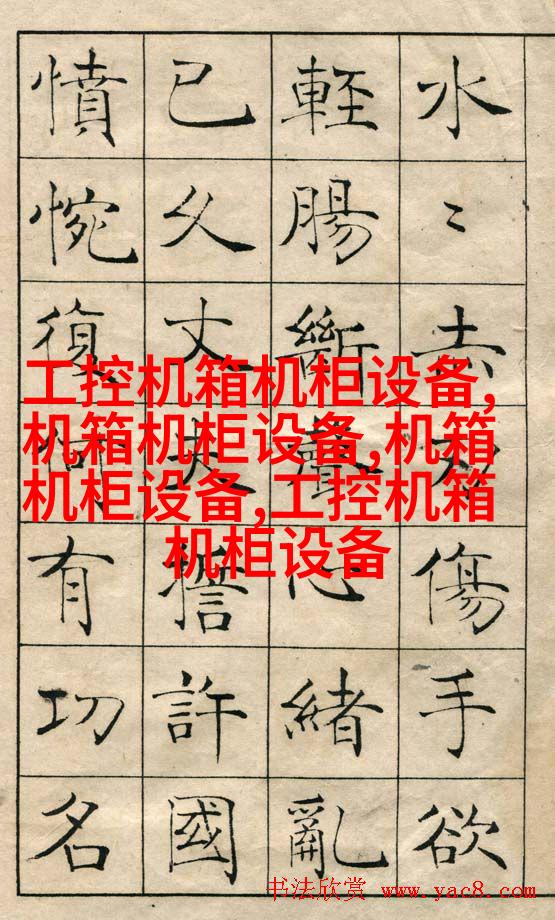 水〻赤刃傷手欲
輕腸斷聲心緒亂
已久丈夫誓許國
憤惋復何有功名
工控机箱机柜设备,
机箱机柜设备,机箱
机柜设备,工控机箱
机柜设备
书法欣赏 www.yac8.com